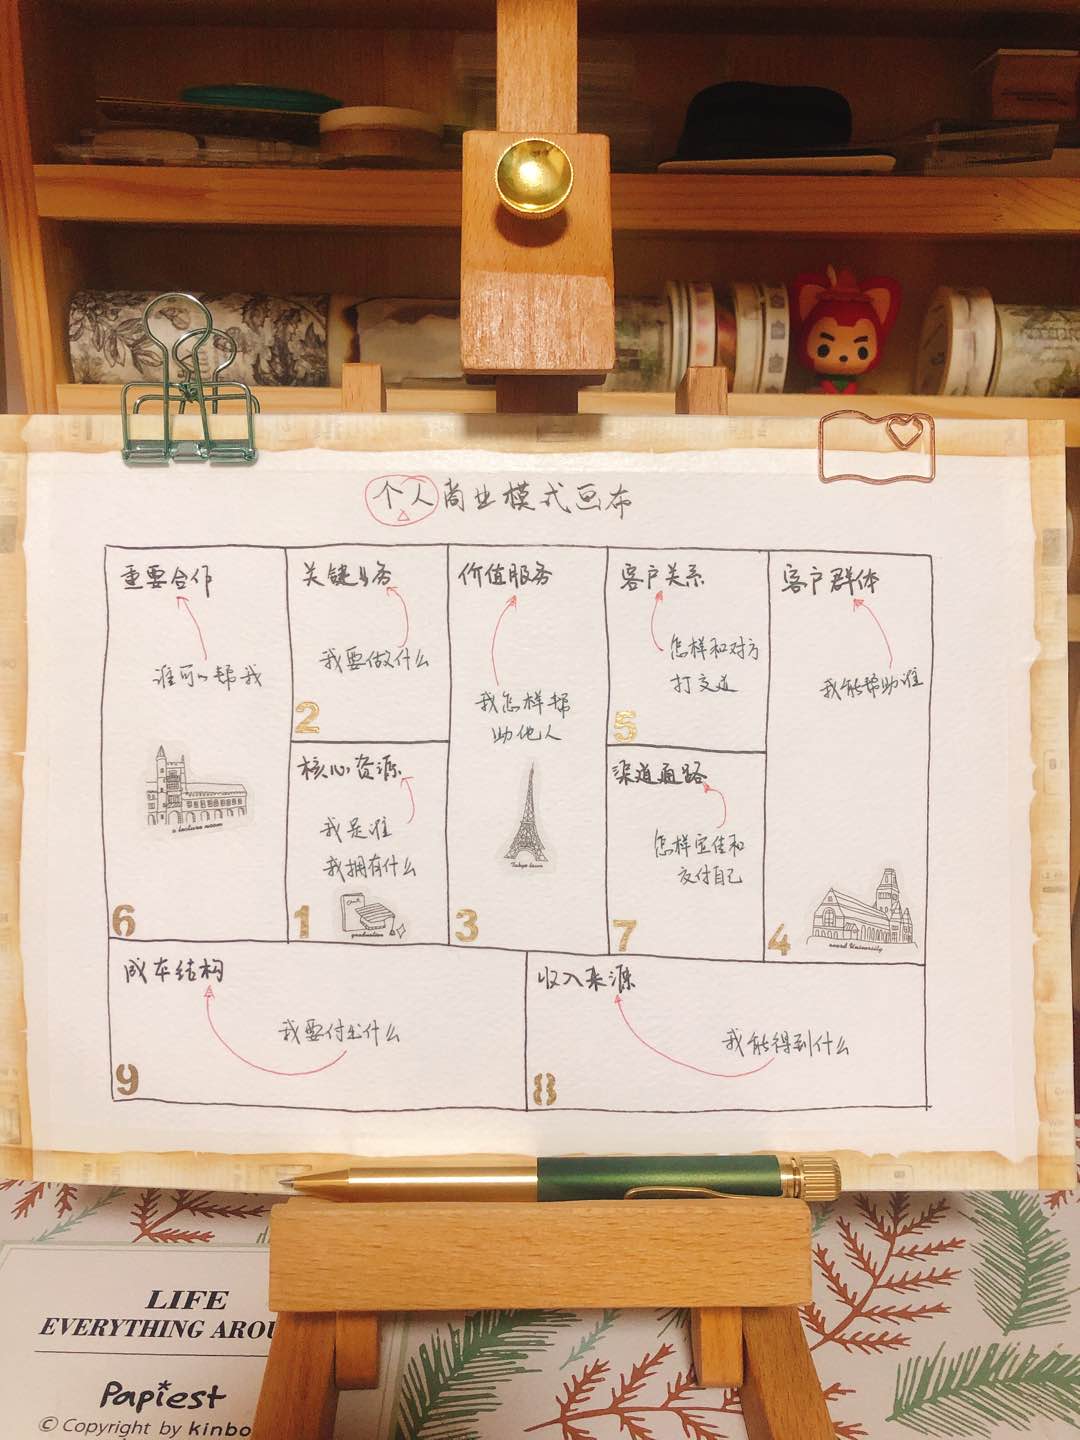 个人商业模式画布
重要合作
谁可以帮我
6
关键业务
我要做什么
2
核心资源
我是谁
我拥有什么
graduation
1
价值服务
我怎样帮
助他人
Tokyo tower
3
客户关系
怎样和对方
打交道
5
渠道通路
怎样宣传和
交付自己
7
客户群体
我能帮助谁
4
a lecture room
成本结构
我要付出什么
9
收入来源
我能得到什么
8
LIFE
EVERYTHING AROU
Papiest
© Copyright by kinbo